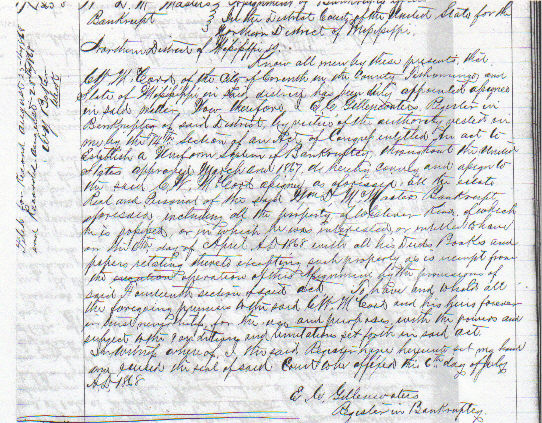 Bankrupt In the District Court of the United States for the
Northern District of Mississippi
Northern District of Mississippi
Know all men by these presents, that
C W McCord of the City of Corinth in the County Tishomingo and
State of Mississippi in said district has been duly appointed assignee
in said matter Now therefore I E. C. Gillenwaters Register in
Bankruptcy of said District, by virtue of the authority vested in
me by the 14th Section of an Act of Congress entitled an act to
Establish a Uniform System of Bankruptcy throughout the United
States approved March 2nd 1867, do hereby convey and assign to
the said C. W. McCord assignee as aforesaid, all the estate
Real and Personal of the said Bankrupt
aforesaid, including all the property of whatever Kind, of which
he is possessed, or in which he was interested or entitled to have
on the day of April AD 1868 with all his Deeds Books and
papers relating thereto excepting such property as is exempt from
the operation of this Assignment by the provisions of
said Fourteenth section of said act To have and to hold all
the foregoing premises to the said C. W. McCord and his heirs forever
in trust nevertheless for the use and purposes, with the powers and
subject to the conditions and limitations set forth in said act.
In testimony whereof, I the said Register have hereunto set my hand
and caused the seal of said Court to be affixed this 6th day of
AD 1868
E. C. Gillenwaters
Register in Bankruptcy
Filed for Record August 22nd 1868
and Recorded August